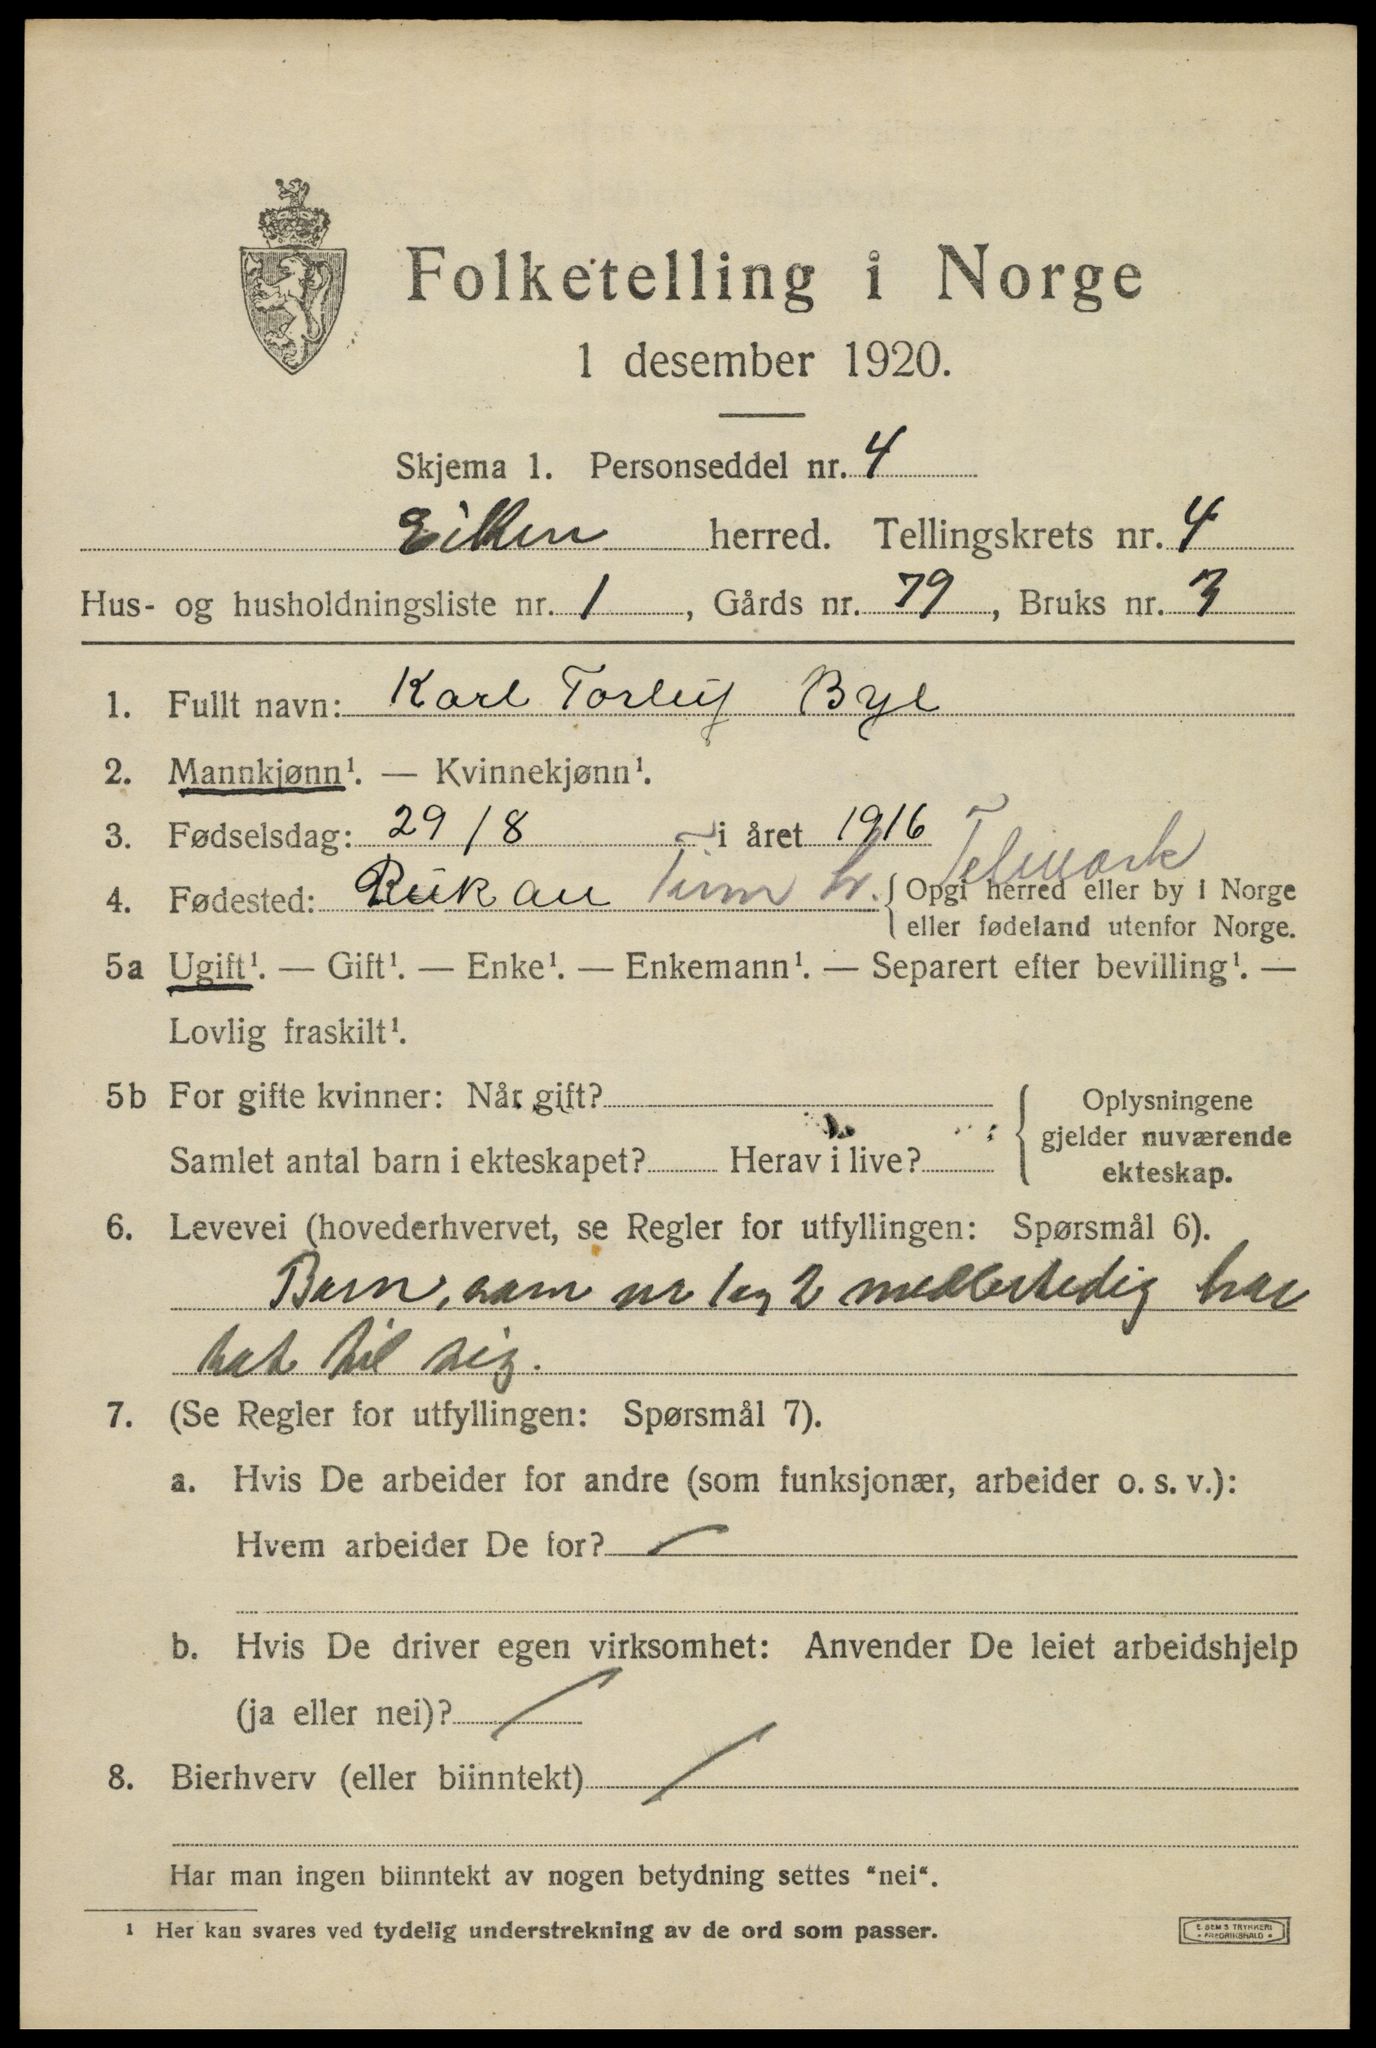 Folketelling i Norge
1 desember 1920.
Skjema 1. Personseddel nr. 4
Eiken herred. Tellingskrets nr. 4
Hus- og husholdningsliste nr. 1, Gårds nr. 79, Bruks nr. 3
1. Fullt navn: Karl Torleif Bye
2. Mannkjønn¹. — Kvinnekjønn¹.
3. Fødselsdag: 29/8 i året 1916 Telemark
4. Fødested: Rukan Tinn hr. { Opgi herred eller by i Norge
eller fødeland utenfor Norge.
5a Ugift¹. — Gift¹. — Enke¹. — Enkemann¹. — Separert efter bevilling¹. —
Lovlig fraskilt¹.
5b For gifte kvinner: Når gift?
Samlet antal barn i ekteskapet? Herav i live?
Oplysningene
gjelder nuværende
ekteskap.
6. Levevei (hovederhvervet, se Regler for utfyllingen: Spørsmål 6).
Barn, som nr 1 og 2 midlertidig har
tat til sig.
7. (Se Regler for utfyllingen: Spørsmål 7).
a. Hvis De arbeider for andre (som funksjonær, arbeider o. s. v.):
Hvem arbeider De for? /
b. Hvis De driver egen virksomhet: Anvender De leiet arbeidshjelp
(ja eller nei)? /
8. Bierhverv (eller biinntekt) /
Har man ingen biinntekt av nogen betydning settes "nei".
¹ Her kan svares ved tydelig understrekning av de ord som passer.
E. SEM'S TRYKKERI
• FREDRIKSHALD •